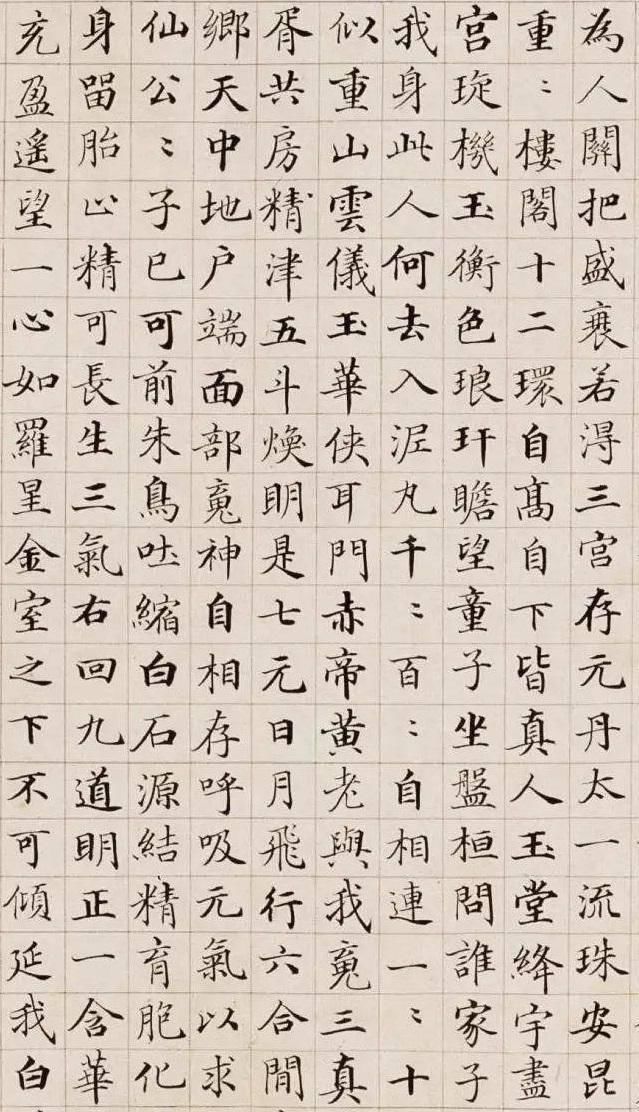 為人關把盛衰若淂三宮存元丹太一流珠安昆
重〻樓閣十二環自髙自下皆真人玉堂絳宇盡
宮琁機玉衡色琅玕瞻望童子坐盤桓問誰家子
我身此人何去入泥丸千〻百〻自相連一〻十
似重山雲儀玉華俠耳門赤帝黃老與我䰟三真
胥共房精津五斗煥明是七元日月飛行六合間
鄉天中地户端面部䰟神自相存呼吸元氣以求
仙公〻子已可前朱鳥吐縮白石源結精育胞化
身留胎止精可長生三氣右回九道明正一含華
充盈遥望一心如羅星金室之下不可傾延我白